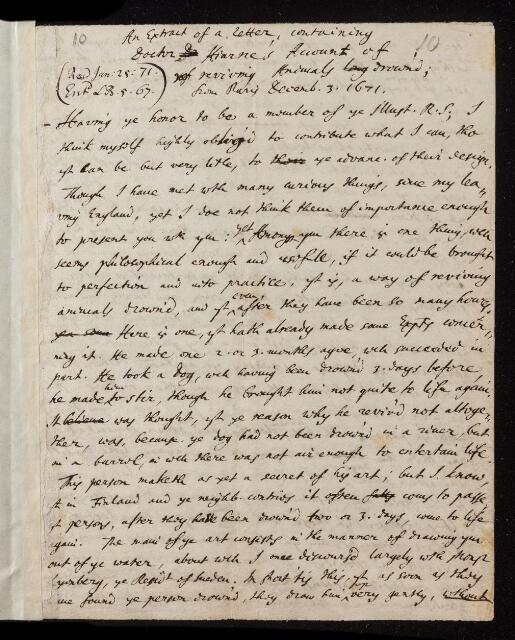 10
10
An Extract of a Letter, containing
Doctor Hiarne's Account of
reviving Animals long drown'd;
from Paris Decemb. 3. 1671.
Read Jan: 25: 71.
Ent'd L.B. 5. 67.
Having ye honor to be a member of ye Illust. R.S; I
think myself highly oblig'd to contribute what I can, tho
yt can be but very litle, to ye advanc. of their design.
Though I have met wth many curious things, since my lea-
ving England, yet I doe not think them of importance enough
to present you wth ym: Yet among ym there is one thing, wch
seems philosophical enough and usefull, if it could be brought
to perfection and into practice; yt is, a way of reviving
animals drown'd, and yt even after they have been so many hours,
Here is one, yt hath already made some Expts concer-
ning it. He made one 2. or 3. months agoe, wch succeeded in
part. He took a Dog, wch having been drown'd 3. days before,
he made him to stir, though he brought him not quite to life again.
It believe was thought, yt ye reason why he reviv'd not altoge-
ther, was, because ye dog had not been drown'd in a river, but
in a barrel, in wch there was not air enough to entertain life.
This person maketh as yet a secret of his art; but I know,
yt in Finland and ye neighb. contries it often comes to passe
yt persons, after they have been drown'd two or 3. days come to life
again. The main of ye art consists in the manner of drawing ym
out of ye water, about wch I once discours'd largely wth Monsr
ye Resid^t of Sweden. In short tis this, yt as soon as they
have found ye person drown'd, they draw him very gently, without